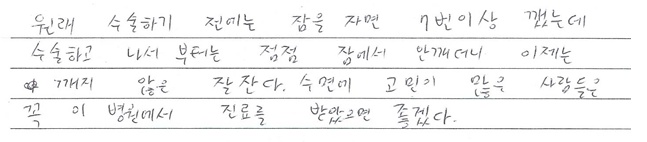 원래 수술하기 전에는 잠을 자면 7번이상 깼는데
수술하고 나서 부터는 점점 잠에서 안깨더니 이제는
깨지 않은 잘잔다. 수면에 고민이 많은 사람들은
꼭 이 병원에서 진료를 받았으면 좋겠다.